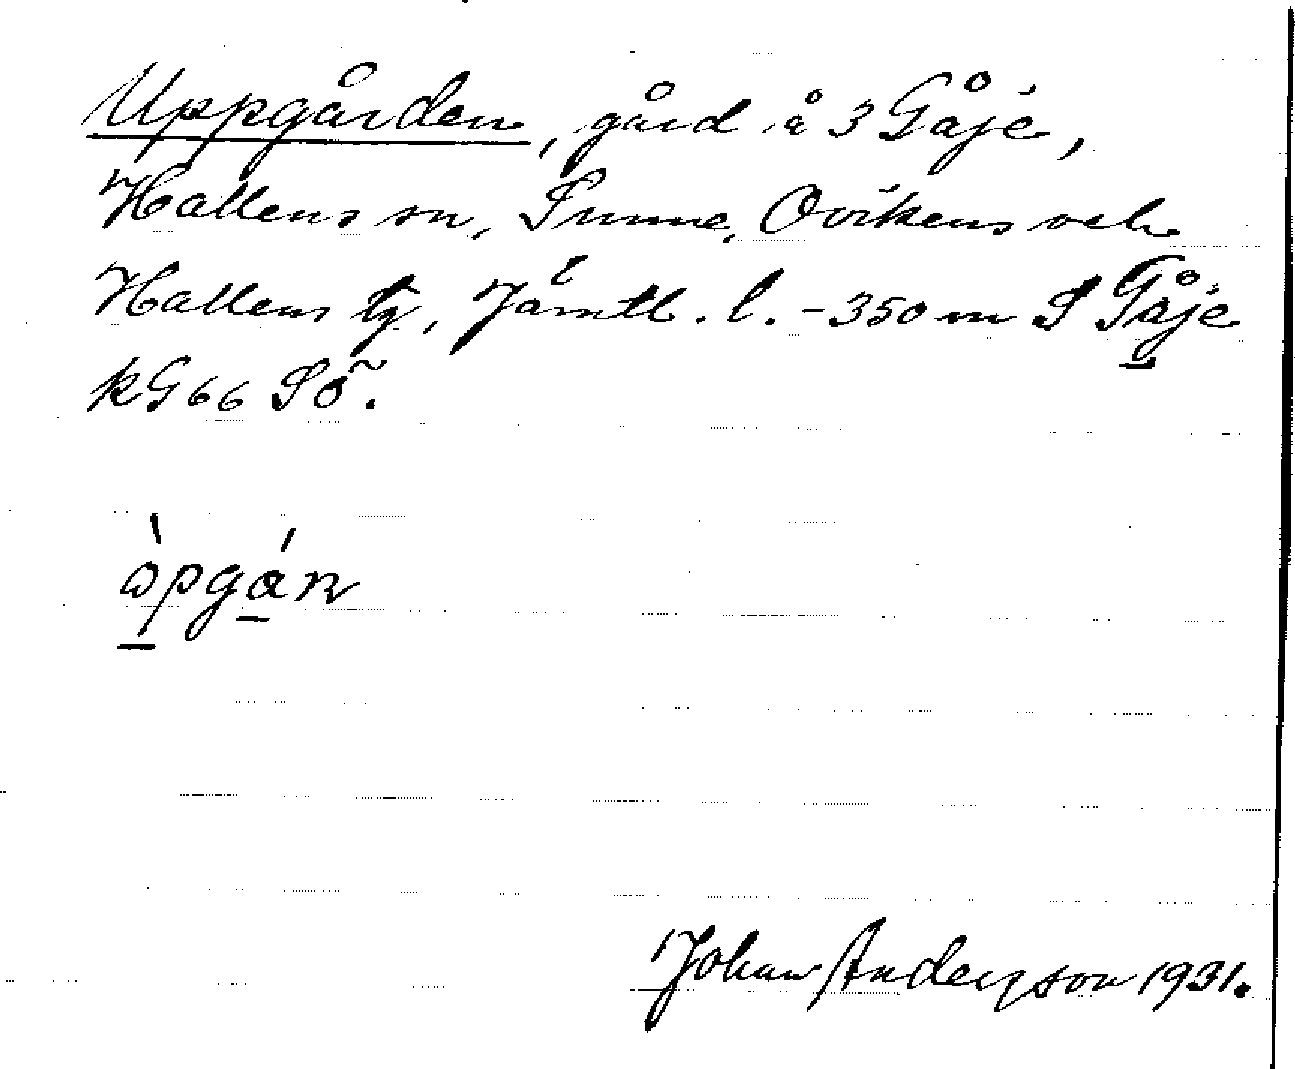 Uppgården, gård å 3 Gåje,
Hallens sn, Sunne, Ovikens och
Hallens tg, Jämtl. l. - 350 m S Gåje
kG66 SÖ.
òpgán
Johan Anderson 1931.